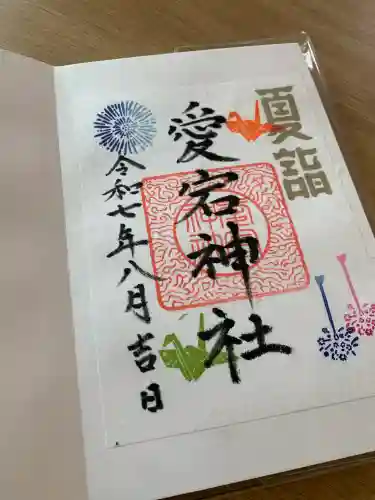 夏詣
愛宕神社
令和七年八月吉日